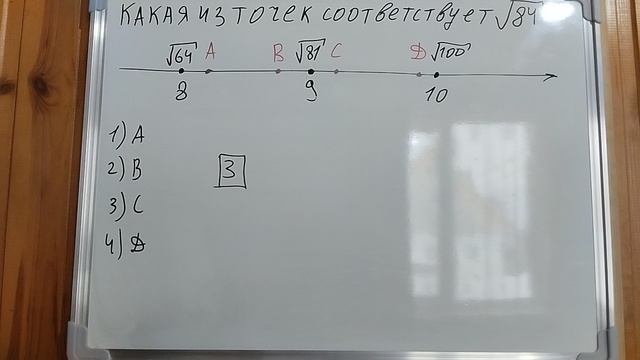 КАКАЯ ИЗ ТОЧЕК СООТВЕТСТВУЕТ √84
√64 A B √81 C D √100
8 9 10
1) A
2) B
3) C
4) D
3